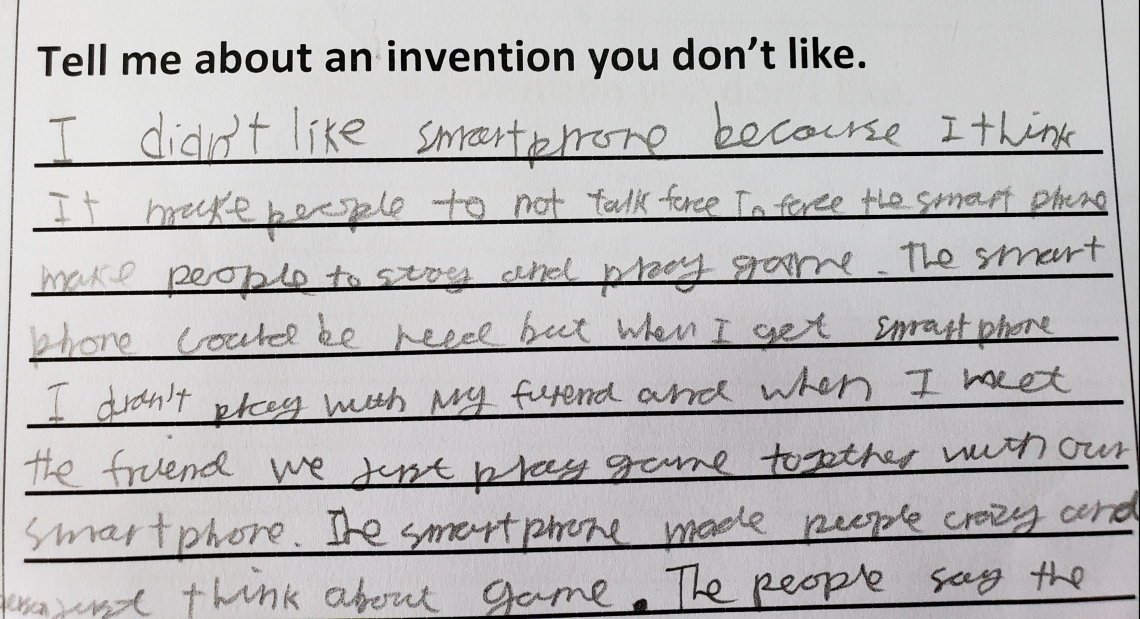 Tell me about an invention you don't like.
I didn't like smartphone because I think
It make people to not talk face In face the smart phone
make people to stay and play game. The smart
phone could be need but when I get smart phone
I didn't play with my friend and when I meet
the friend we just play game together with our
smartphone. The smartphone made people crazy and
just think about game. The people say the